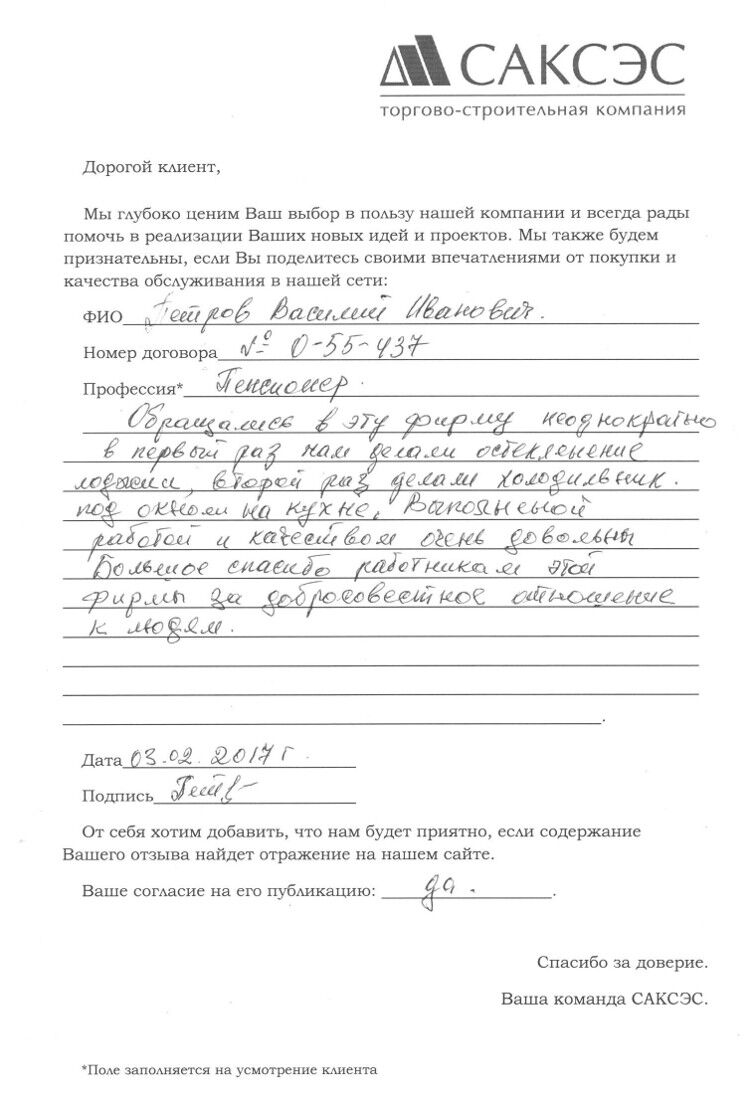 САКСЭС
торгово-строительная компания
Дорогой клиент,
Мы глубоко ценим Ваш выбор в пользу нашей компании и всегда рады
помочь в реализации Ваших новых идей и проектов. Мы также будем
признательны, если Вы поделитесь своими впечатлениями от покупки и
качества обслуживания в нашей сети:
ФИО Петров Василий Иванович.
Номер договора № 0-55-437
Профессия* Пенсионер.
Обращались в эту фирму неоднократно
в первый раз нам делали остекленение
лоджии, второй раз делали холодильник.
под окном на кухне. Выполненой
работой и качеством очень довольны
Большое спасибо работникам этой
фирмы за добросовестное отношение
к людям.
Дата 03.02.2017 г.
Подпись
От себя хотим добавить, что нам будет приятно, если содержание
Вашего отзыва найдет отражение на нашем сайте.
Ваше согласие на его публикацию: да.
Спасибо за доверие.
Ваша команда САКСЭС.
*Поле заполняется на усмотрение клиента